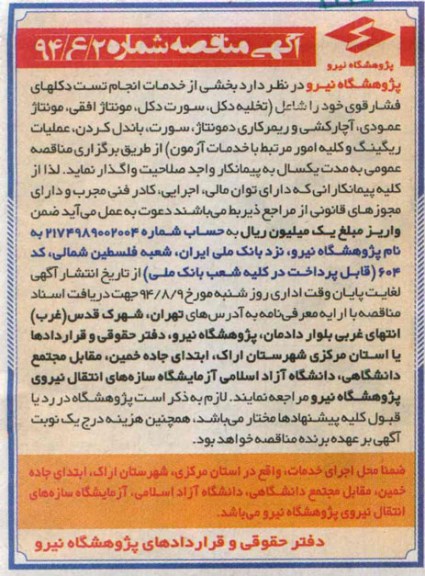 پژوهشگاه نیرو
آگهی مناقصه شماره ۹۴/ع/۲
پژوهشگاه نیرو در نظر دارد بخشی از خدمات انجام تست دکلهای
فشار قوی خود را شاغل (تخلیه دکل، سورت دکل، مونتاژ افقی، مونتاژ
عمودی، آچارکشی و ریمرکاری دمونتاژ، سورت، باندل کردن، عملیات
ریگینگ و کلیه امور مرتبط با خدمات آزمون) از طریق برگزاری مناقصه
عمومی به مدت یکسال به پیمانکار واجد صلاحیت واگذار نماید. لذا از
کلیه پیمانکارانی که دارای توان مالی، اجرایی، کادر فنی مجرب و دارای
مجوزهای قانونی از مراجع ذیربط می‌باشند دعوت به عمل می‌آید ضمن
واریز مبلغ یک میلیون ریال به حساب شماره ۲۱۷۴۹۸۹۰۰۲۰۰۴ به
نام پژوهشگاه نیرو، نزد بانک ملی ایران، شعبه فلسطین شمالی، کد
۶۰۴ (قابل پرداخت در کلیه شعب بانک ملی) از تاریخ انتشار آگهی
لغایت پایان وقت اداری روز شنبه مورخ ۹۴/۸/۹ جهت دریافت اسناد
مناقصه با ارایه معرفی‌نامه به آدرس‌های تهران، شهرک قدس(غرب)
انتهای غربی بلوار دادمان، پژوهشگاه نیرو، دفتر حقوقی و قراردادها
یا استان مرکزی شهرستان اراک، ابتدای جاده خمین، مقابل مجتمع
دانشگاهی، دانشگاه آزاد اسلامی آزمایشگاه سازه‌های انتقال نیروی
پژوهشگاه نیرو مراجعه نمایند. لازم به ذکر است پژوهشگاه در رد یا
قبول کلیه پیشنهادها مختار می‌باشد، همچنین هزینه درج یک نوبت
آگهی بر عهده برنده مناقصه خواهد بود.
ضمنا محل اجرای خدمات، واقع در استان مرکزی، شهرستان اراک، ابتدای جاده
خمین، مقابل مجتمع دانشگاهی، دانشگاه آزاد اسلامی، آزمایشگاه سازه‌های
انتقال نیروی پژوهشگاه نیرو می‌باشد.
دفتر حقوقی و قراردادهای پژوهشگاه نیرو